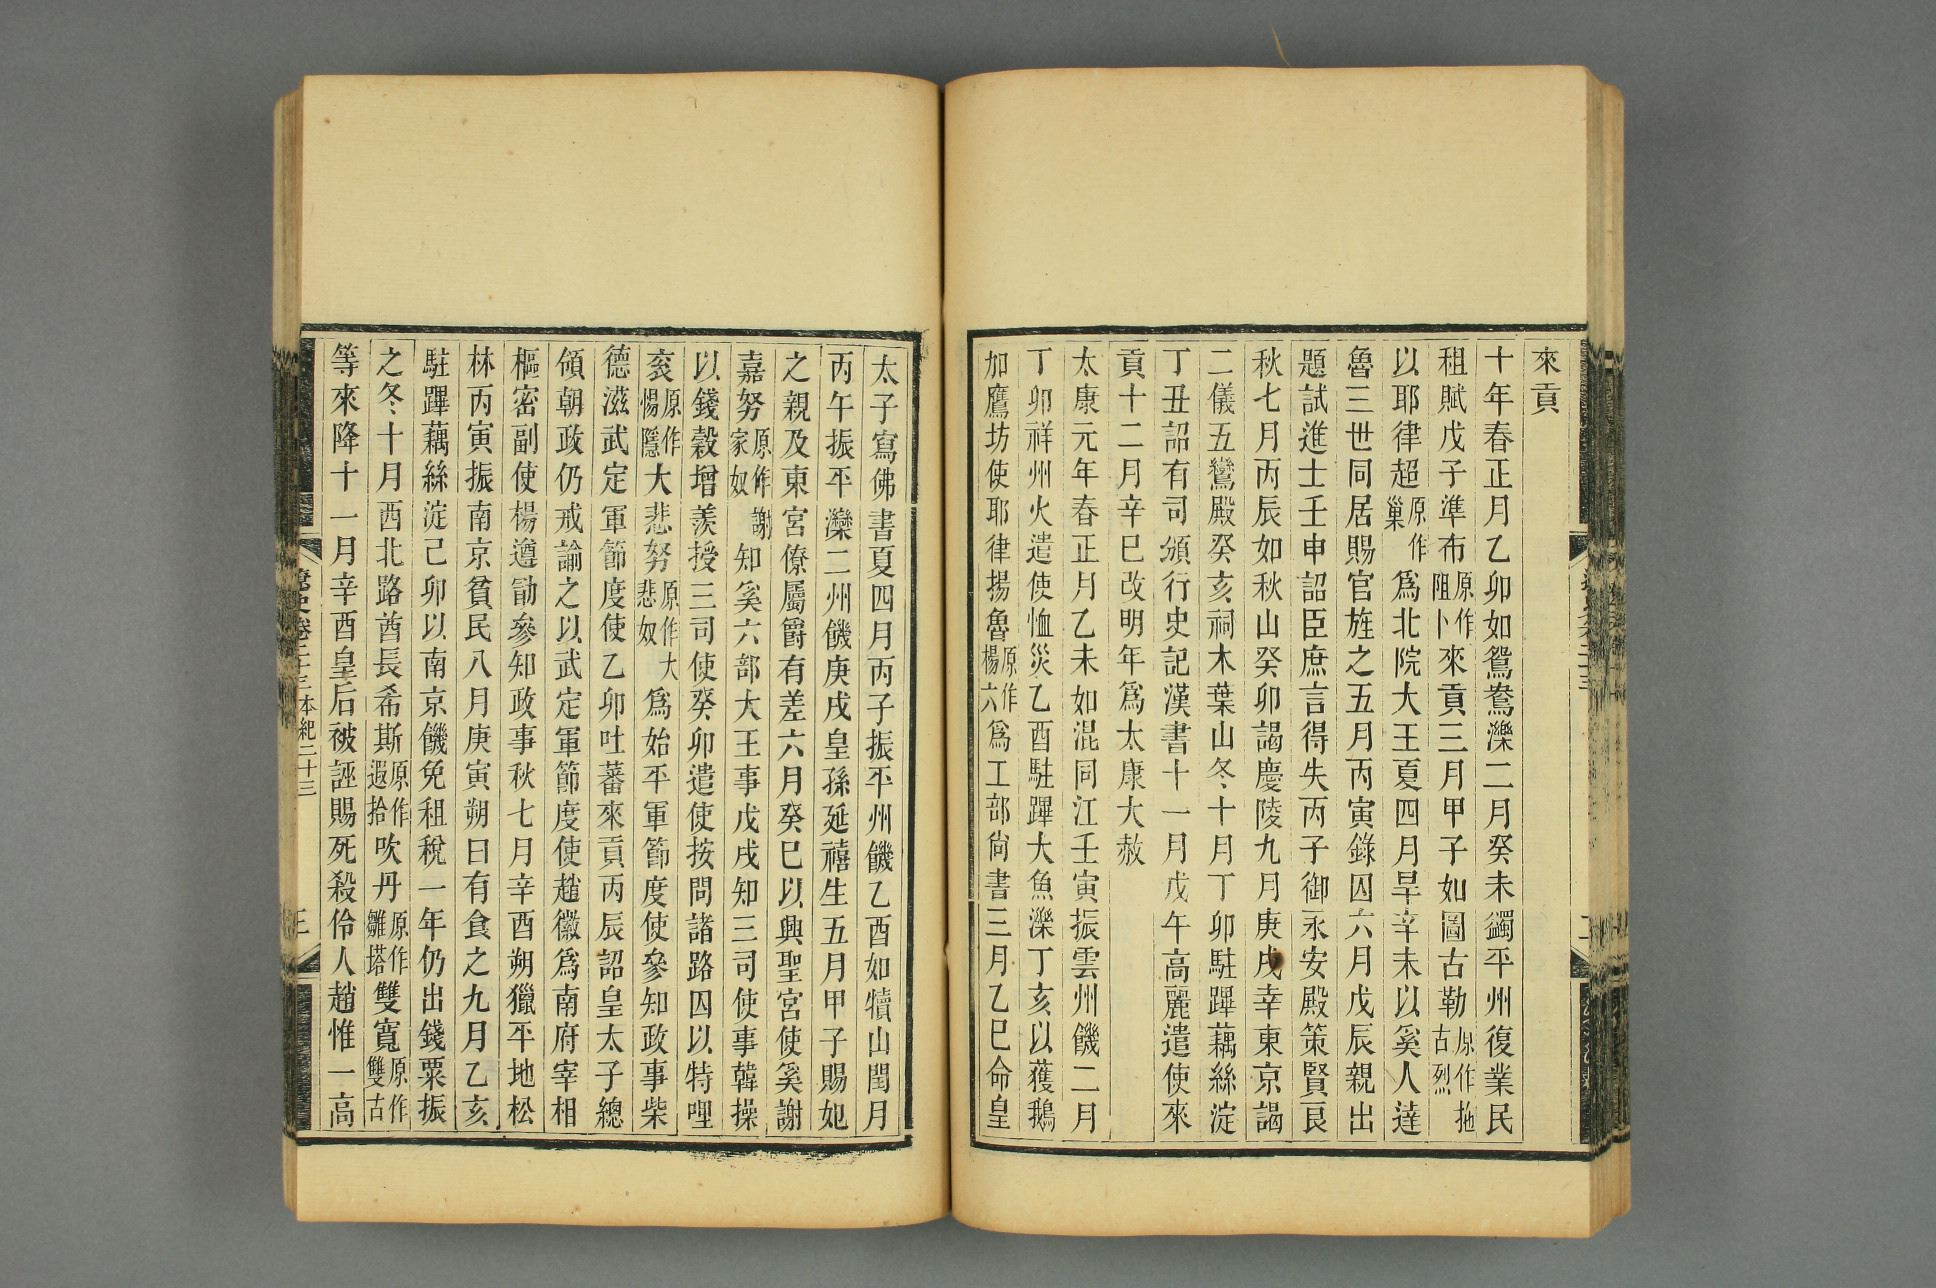 來貢
十年春正月乙卯如鴛鴦濼二月癸未蠲平州復業民
租賦戊子準布原作阻卜來貢三月甲子如圖古勒原作拖古烈
以耶律超原作巢爲北院大王夏四月旱辛未以奚人達
魯三世同居賜官旌之五月丙寅錄囚六月戊辰親出
題試進士壬申詔臣庶言得失丙子御永安殿策賢良
秋七月丙辰如秋山癸卯謁慶陵九月庚戌幸東京謁
二儀五鸞殿癸亥祠木葉山冬十月丁卯駐蹕藕絲淀
丁丑詔有司頒行史記漢書十一月戊午高麗遣使來
貢十二月辛巳改明年爲太康大赦
太康元年春正月乙未如混同江壬寅振雲州饑二月
丁卯祥州火遣使恤災乙酉駐蹕大魚濼丁亥以獲鵝
加鷹坊使耶律揚魯原作楊六爲工部尙書三月乙巳命皇
太子寫佛書夏四月丙子振平州饑乙酉如犢山閏月
丙午振平灤二州饑庚戌皇孫延禧生五月甲子賜妃
之親及東宮僚屬爵有差六月癸巳以興聖宮使奚謝
嘉努原作謝家奴知奚六部大王事戊戌知三司使事韓操
以錢穀增羨授三司使癸卯遣使按問諸路囚以特哩
袞原作惕隱大悲努原作大悲奴爲始平軍節度使參知政事柴
德滋武定軍節度使乙卯吐蕃來貢丙辰詔皇太子總
領朝政仍戒諭之以武定軍節度使趙徽爲南府宰相
樞密副使楊遵勖參知政事秋七月辛酉朔獵平地松
林丙寅振南京貧民八月庚寅朔日有食之九月乙亥
駐蹕藕絲淀己卯以南京饑免租稅一年仍出錢粟振
之冬十月西北路酋長希斯原作遐拾吹丹原作雛塔雙寬原作雙古
等來降十一月辛酉皇后被誣賜死殺伶人趙惟一高
遼史卷二十三 本紀二十三
三